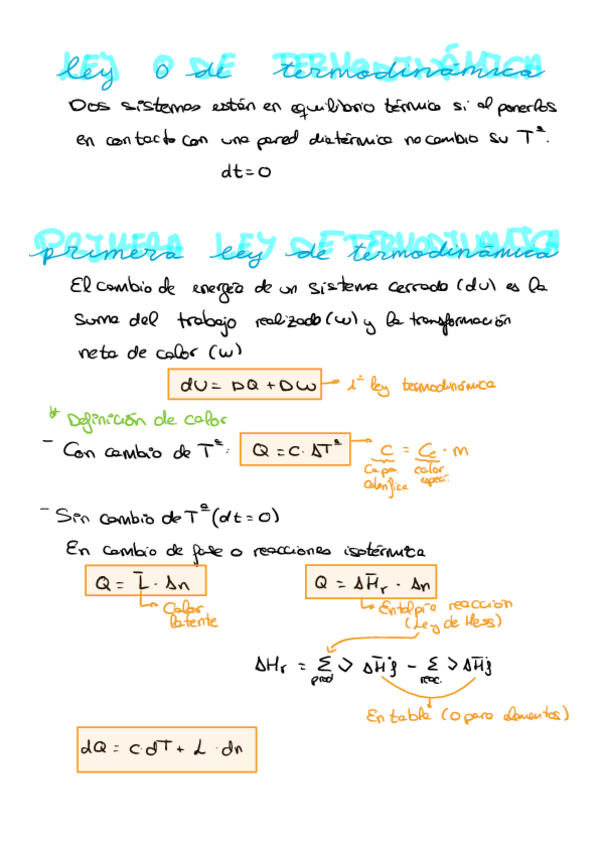 ley 0 de termodinámica
Dos sistemas están en equilibrio térmico si al ponerlos
en contacto con una pared diatérmica no cambia su Tª.
dt=0
primera ley de termodinámica
El cambio de energía de un sistema cerrado (dU) es la
suma del trabajo realizado (w) y la transformación
neta de calor (w)
dU = DQ + DW 1ª ley termodinámica
* Definición de calor
- Con cambio de Tª: Q = C · ΔTª C = Ce · m
Capa. calor
calorífica especí.
- Sin cambio de Tª (dt=0)
En cambio de fase o reacciones isotérmica
Q = L̄ · Δn Q = ΔH̄r · Δn
Calor Entalpía reacción
latente (Ley de Hess)
ΔHr = Σ ν ΔH̄f - Σ ν ΔH̄f
prod reac.
En tabla (0 para elementos)
dQ = C·dT + L · dn